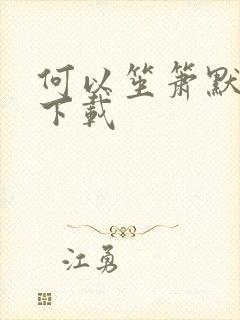 何以笙箫默
下载
江勇